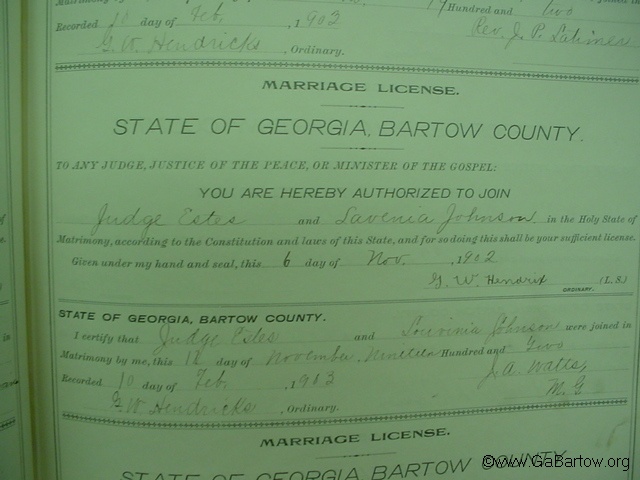 Hundred and two
Recorded 10 day of Feb, , 1903 Rev. J. P. Latimer
G. W. Hendricks, Ordinary.
MARRIAGE LICENSE.
STATE OF GEORGIA, BARTOW COUNTY.
TO ANY JUDGE, JUSTICE OF THE PEACE, OR MINISTER OF THE GOSPEL:
YOU ARE HEREBY AUTHORIZED TO JOIN
Judge Estes and Lavenia Johnson in the Holy State of
Matrimony, according to the Constitution and laws of this State, and for so doing this shall be your sufficient license.
Given under my hand and seal, this 6 day of Nov. , 1902
G. W. Hendrix (L. S.)
ORDINARY.
STATE OF GEORGIA, BARTOW COUNTY.
I certify that Judge Estes and Lourinia Johnson were joined in
Matrimony by me, this 12 day of November Nineteen Hundred and Two
Recorded 10 day of Feb, , 1903 J. A. Watts,
G. W. Hendricks, Ordinary. M. G
MARRIAGE LICENSE.
STATE OF GEORGIA, BARTOW COUNTY.
©www.GaBartow.org